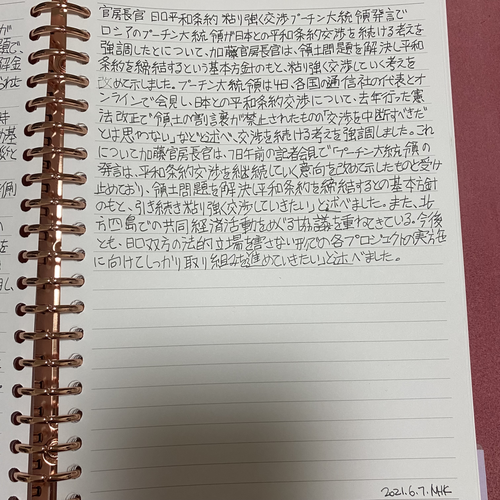 官房長官 日ロ平和条約 粘り強く交渉 プーチン大統領発言で
ロシアのプーチン大統領が日本との平和条約交渉を続ける考えを
強調したことについて、加藤官房長官は、領土問題を解決し平和
条約を締結するという基本方針のもと、粘り強く交渉していく考えを
改めて示しました。プーチン大統領は4日、各国の通信社の代表とオ
ンラインで会見し、日本との平和条約交渉について、去年行った憲
法改正で「領土の割譲が禁止されたものの「交渉を中断すべきだ」
とは思わない」などと述べ、交渉を続ける考えを強調しました。これ
について加藤官房長官は、7日午前の記者会見で「プーチン大統領の
発言は、平和条約交渉を継続していく意向を改めて示したものと受け
止めており、領土問題を解決し平和条約を締結するとの基本方針
のもと、引き続き粘り強く交渉していきたい」と述べました。また、北
方四島での共同経済活動をめぐる協議を重ねてきている。今後
とも、日ロ双方の法的立場を害さない形での各プロジェクトの実現
に向けてしっかり取り組みを進めていきたい」と述べました。
2021.6.7. MHK
が
題で、
金
られた
持
が基
後と
側
を
し、